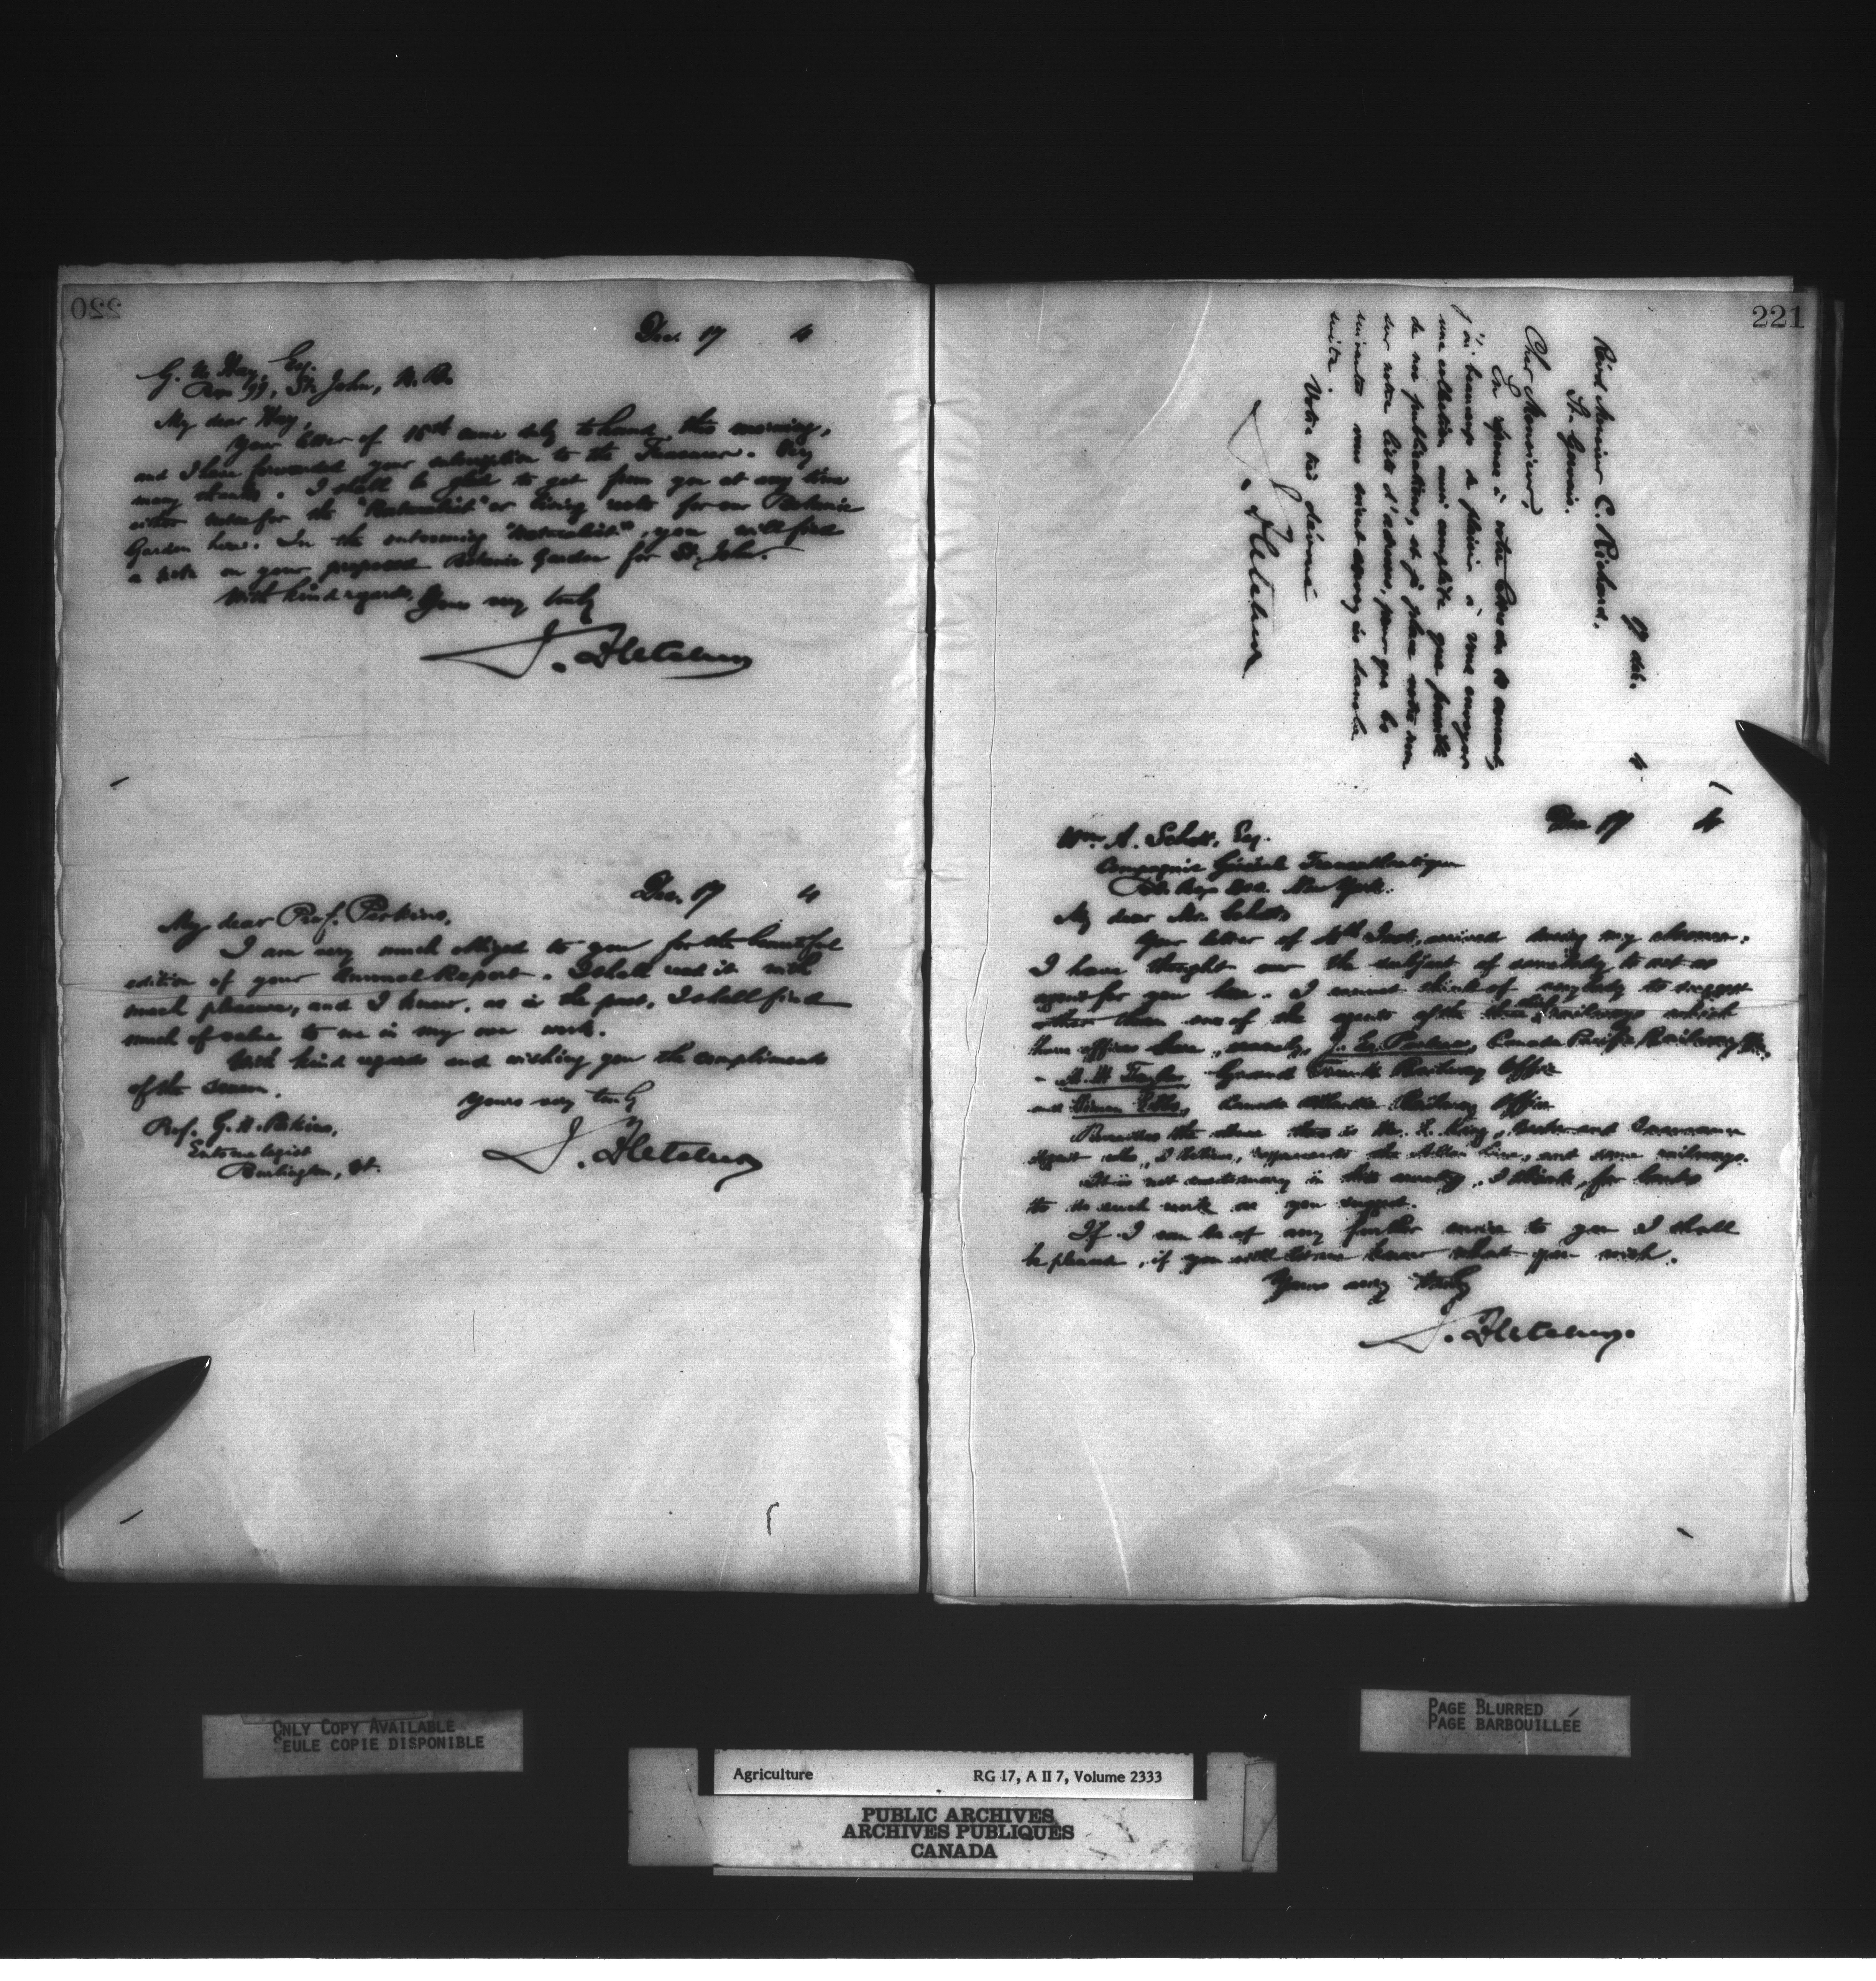 220
Dec. 17 4
G. U. Hay, Esq.
Box 99, St. John, N.B.
My dear Hay,
Your letter of 15th came duly to hand this morning,
and I have forwarded your subscription to the Treasurer. Very
many thanks. I shall be glad to get from you at any time
either notes for the "Naturalist" or living roots for our Botanic
Garden here. In the outcoming "Naturalist", you will find
a note on your proposed Botanic Garden for St. John.
With kind regards, Yours very truly
J. Fletcher
Dec. 17 4
My dear Prof. Perkins,
I am very much obliged to you for the beautiful
edition of your Annual Report. I shall read it with
much pleasure, and I know, as in the past, I shall find
much of value to me in my own work.
With kind regards and wishing you the compliments
of the season.
Yours very truly
J. Fletcher
Prof. G. H. Perkins,
Entomologist
Burlington, Vt.
221
17 déc. 4
Révd. Monsieur C. Richard,
St.
Cher Monsieur,
En réponse à votre du courant,
j'ai beaucoup de plaisir à vous envoyer
une collection aussi complète que possible
de nos publications, et je place votre nom
sur notre liste d'adresses, pour que les
suivantes vous soient envoyées dans la
suite. Votre très dévoué
J. Fletcher
Dec 17 4
Wm. A. Schott, Esq.
Compagnie Générale Transatlantique
New York.
My dear Mr. Schott,
Your letter of Inst., arrived during my absence.
I have thought over the subject of somebody to act as
agent for you here. I cannot think of anybody to suggest
other than one of the agents of the three railways which
have offices here, namely, J. E. Parker, Canada Pacific Railway
Grand Trunk Railway Office
and Canada Atlantic Railway Office
Besides the above there is Mr. King, and Insurance
Agent who, I believe, represents the Allan Line, and some railways.
It is not customary in this country, I think, for banks
to do such work as you suggest.
If I can be of any further service to you I shall
be pleased, if you will let me know what you wish.
Yours very truly
J. Fletcher.
ONLY COPY AVAILABLE
SEULE COPIE DISPONIBLE
PAGE BLURRED
PAGE BARBOUILLÉE
Agriculture RG 17, A II 7, Volume 2333
PUBLIC ARCHIVES
ARCHIVES PUBLIQUES
CANADA